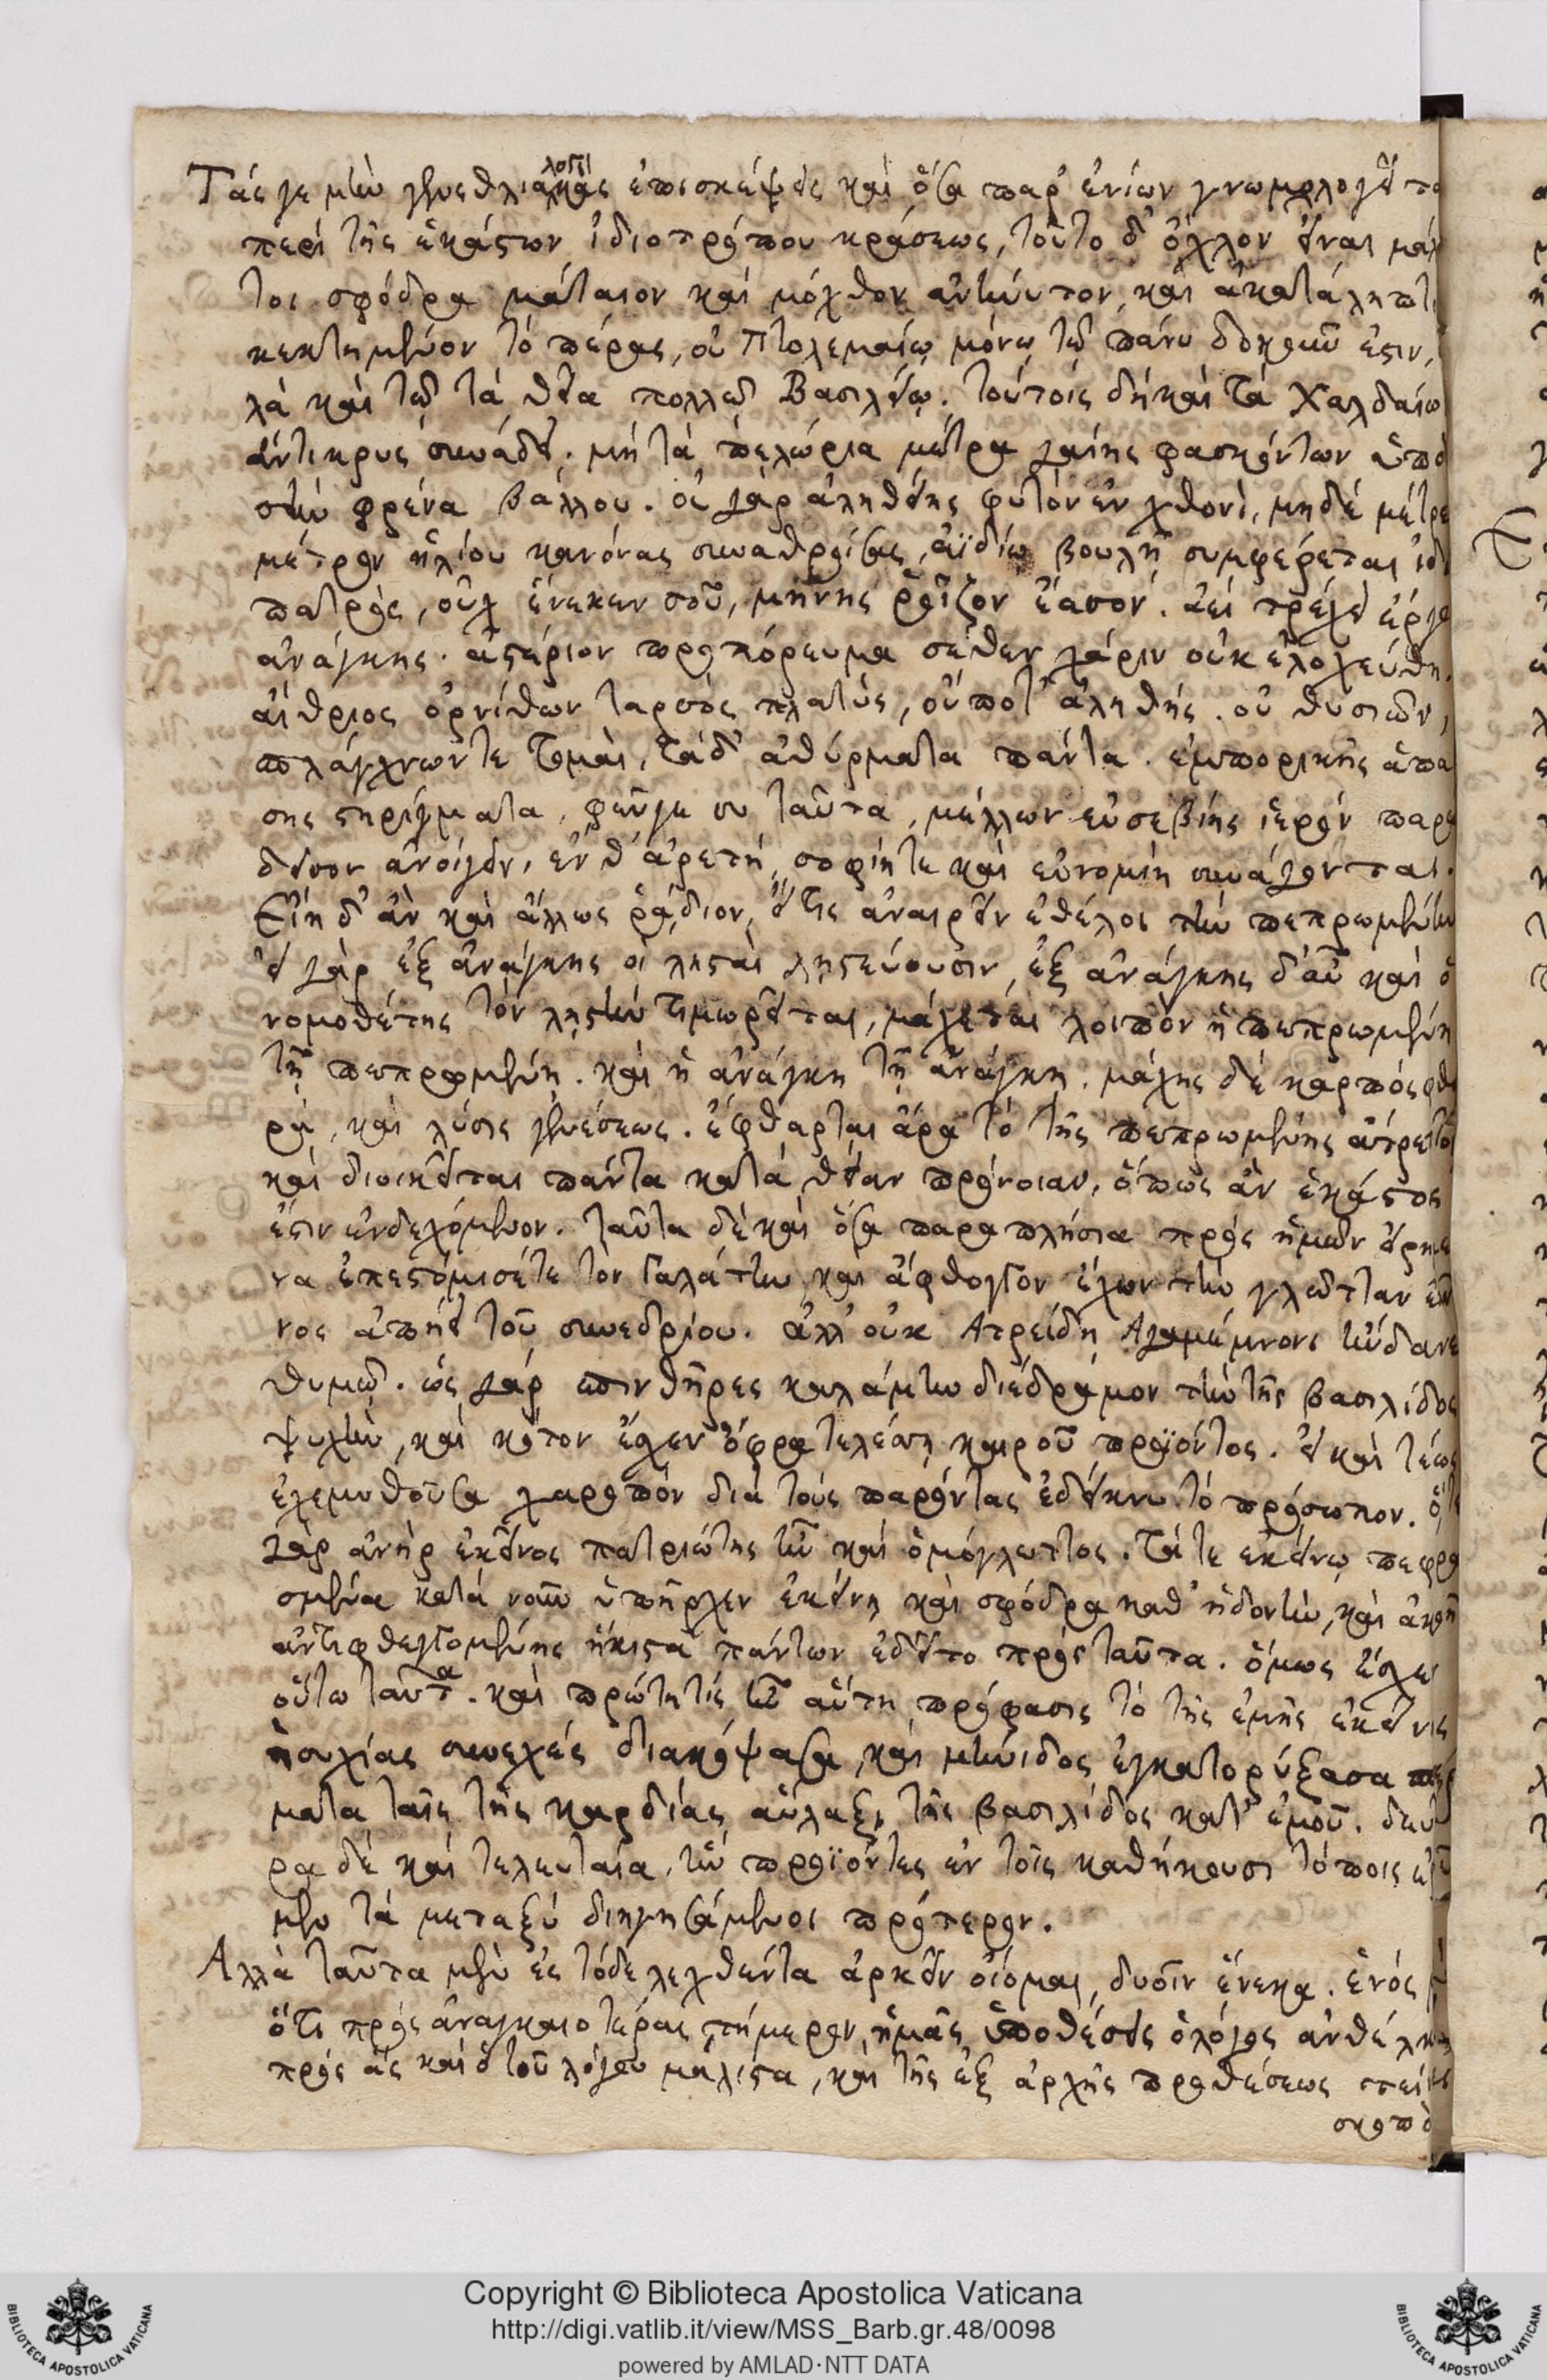 Τάς γε μὴν γενεθλιαλογικὰς ἐπισκέψεις καὶ ὅσα παρ' ἐνίων γνωμολογεῖτα
περὶ τῆς ἑκάστων ἰδιοτρόπου κράσεως, τοῦτο δ' ὄχλον εἶναι μάν
τοι σφόδρα μάταιον καὶ μόχθον ἀνήνυτον, καὶ ἀκατάληπτο
κεκτημένον τὸ πέρας, οὐ Πτολεμαίῳ μόνῳ τῷ πάνυ δοκοῦν ἐστιν,
λὰ καὶ τῷ τὰ θεῖα πολλῷ Βασιλείῳ. τούτοις δὴ καὶ τὰ Χαλδαίω
ἄντικρυς συνάδει. μὴ τὰ πελώρια μέτρα γαίης φασκόντων ὑπὸ
σὴν φρένα βάλλου. οὐ γὰρ ἀληθείης φυτὸν ἐν χθονὶ, μηδὲ μέτρει
μέτρον ἡλίου κανόνας συναθροίσας, ἀϊδίῳ βουλῇ συμφέρεται
πατρὸς, οὐχ ἕνεκεν σοῦ, μήνης ῥοῖζον ἔασον. ἀεὶ τρέχει ἔργῳ
ἀνάγκης. ἀστέριον προπόρευμα σέθεν χάριν οὐκ ἐλοχεύθη.
αἴθριος ὀρνίθων ταρσὸς πλατὺς, οὔποτ' ἀληθής. οὐ θυσιῶν,
σπλάγχνων τε τομαὶ, τάδ' ἀθύρματα πάντα. ἐμπορικῆς ἀπά
σης στηρίγματα, φεῦγε συ ταῦτα, μέλλων εὐσεβίης ἱερὸν παρά
δεισον ἀνοίγειν, ἔνθ' ἀρετή, σοφίη τε καὶ εὐνομίη συνάγονται.
Εἴη δ' ἂν καὶ ἄλλως ῥᾴδιον, εἴ τις ἀναιρεῖν ἐθέλοι τὴν πεπρωμένην
εἰ γὰρ ἐξ ἀνάγκης οἱ λῃσταὶ λῃστεύουσιν, ἐξ ἀνάγκης δ' αὖ καὶ ὁ
νομοθέτης τὸν λῃστὴν τιμωρεῖται, μάχεται λοιπὸν ἡ πεπρωμένη
τῇ πεπρωμένῃ. καὶ ἡ ἀνάγκη τῇ ἀνάγκῃ. μάχης δὲ καρπὸς φθο
ρὰ, καὶ λύσις γενέσεως. ἔφθαρται ἄρα τὸ τῆς πεπρωμένης ἄτρεπτον
καὶ διοικεῖται πάντα κατὰ θείαν πρόνοιαν, ὅπως ἂν ἑκάστοις
ἔστιν ἐνδεχόμενον. ταῦτα δὲ καὶ ὅσα παραπλήσια πρὸς ἡμῶν εἰρημέ
να ἐπεστόμισέ τε τὸν Γαλάτην, καὶ ἄφθογγον ἔχων τὴν γλῶτταν
νος ἀπῄει τοῦ συνεδρίου. ἀλλ' οὐκ Ἀτρείδῃ Ἀγαμέμνονι ἥνδανε
θυμῷ. ὡς γὰρ σπινθῆρες καλάμην διέδραμον τὴν τῆς βασιλίδος
ψυχὴν, καὶ κότον ἔχεν ὄφρα τελέσῃ καιροῦ προϊόντος. εἰ καὶ τέως
ἐχεμυθοῦσα χαροπὸν διὰ τοὺς παρόντας ἐδείκνυ τὸ πρόσωπον. ὅ τε
γὰρ ἀνὴρ ἐκεῖνος πατριώτης ἦν καὶ ὁμόγλωττος. τά τε ἐκείνῳ πεφρα
σμένα κατὰ νοῦν ὑπῆρχεν ἐκείνῃ καὶ σφόδρα καθ' ἡδονὴν, καὶ ἀκοῇ
ἀντιφθεγγομένης ἥκιστα πάντων ἐδεῖτο πρὸς ταῦτα. ὅμως ἔσχεν
οὕτω ταῦτα. καὶ πρώτη τίς ἦν αὕτη πρόφασις τὸ τῆς ἐμῆς ἐκείνης
ἡσυχίας συνεχὲς διακόψασα, καὶ μήνιδος ἐγκατορύξασα σπέρ
ματα ταῖς τῆς καρδίας αὔλαξι τῆς βασιλίδος κατ' ἐμοῦ. δευτέ
ρα δὲ καὶ τελευταία, ἣν προϊόντες ἐν τοῖς καθήκουσι τόποις ἐροῦ
μεν τὰ μεταξὺ διηγησάμενοι πρότερον.
Ἀλλὰ ταῦτα μὲν ἐς τόδε λεχθέντα ἀρκεῖν οἴομαι, δυοῖν ἕνεκα. ἑνὸς μ
ὅτι πρὸς ἀναγκαιοτέρας τήμερον ἡμᾶς ὑποθέσεις ὁ λόγος ἀνθέλκει
πρὸς ἃς καὶ ὁ τοῦ λόγου μάλιστα, καὶ τῆς ἐξ ἀρχῆς προθέσεως
σκοπὸ
Copyright © Biblioteca Apostolica Vaticana
http://digi.vatlib.it/view/MSS_Barb.gr.48/0098
powered by AMLAD·NTT DATA
BIBLIOTECA APOSTOLICA VATICANA
BIBLIOTECA APOSTOLICA VATICANA